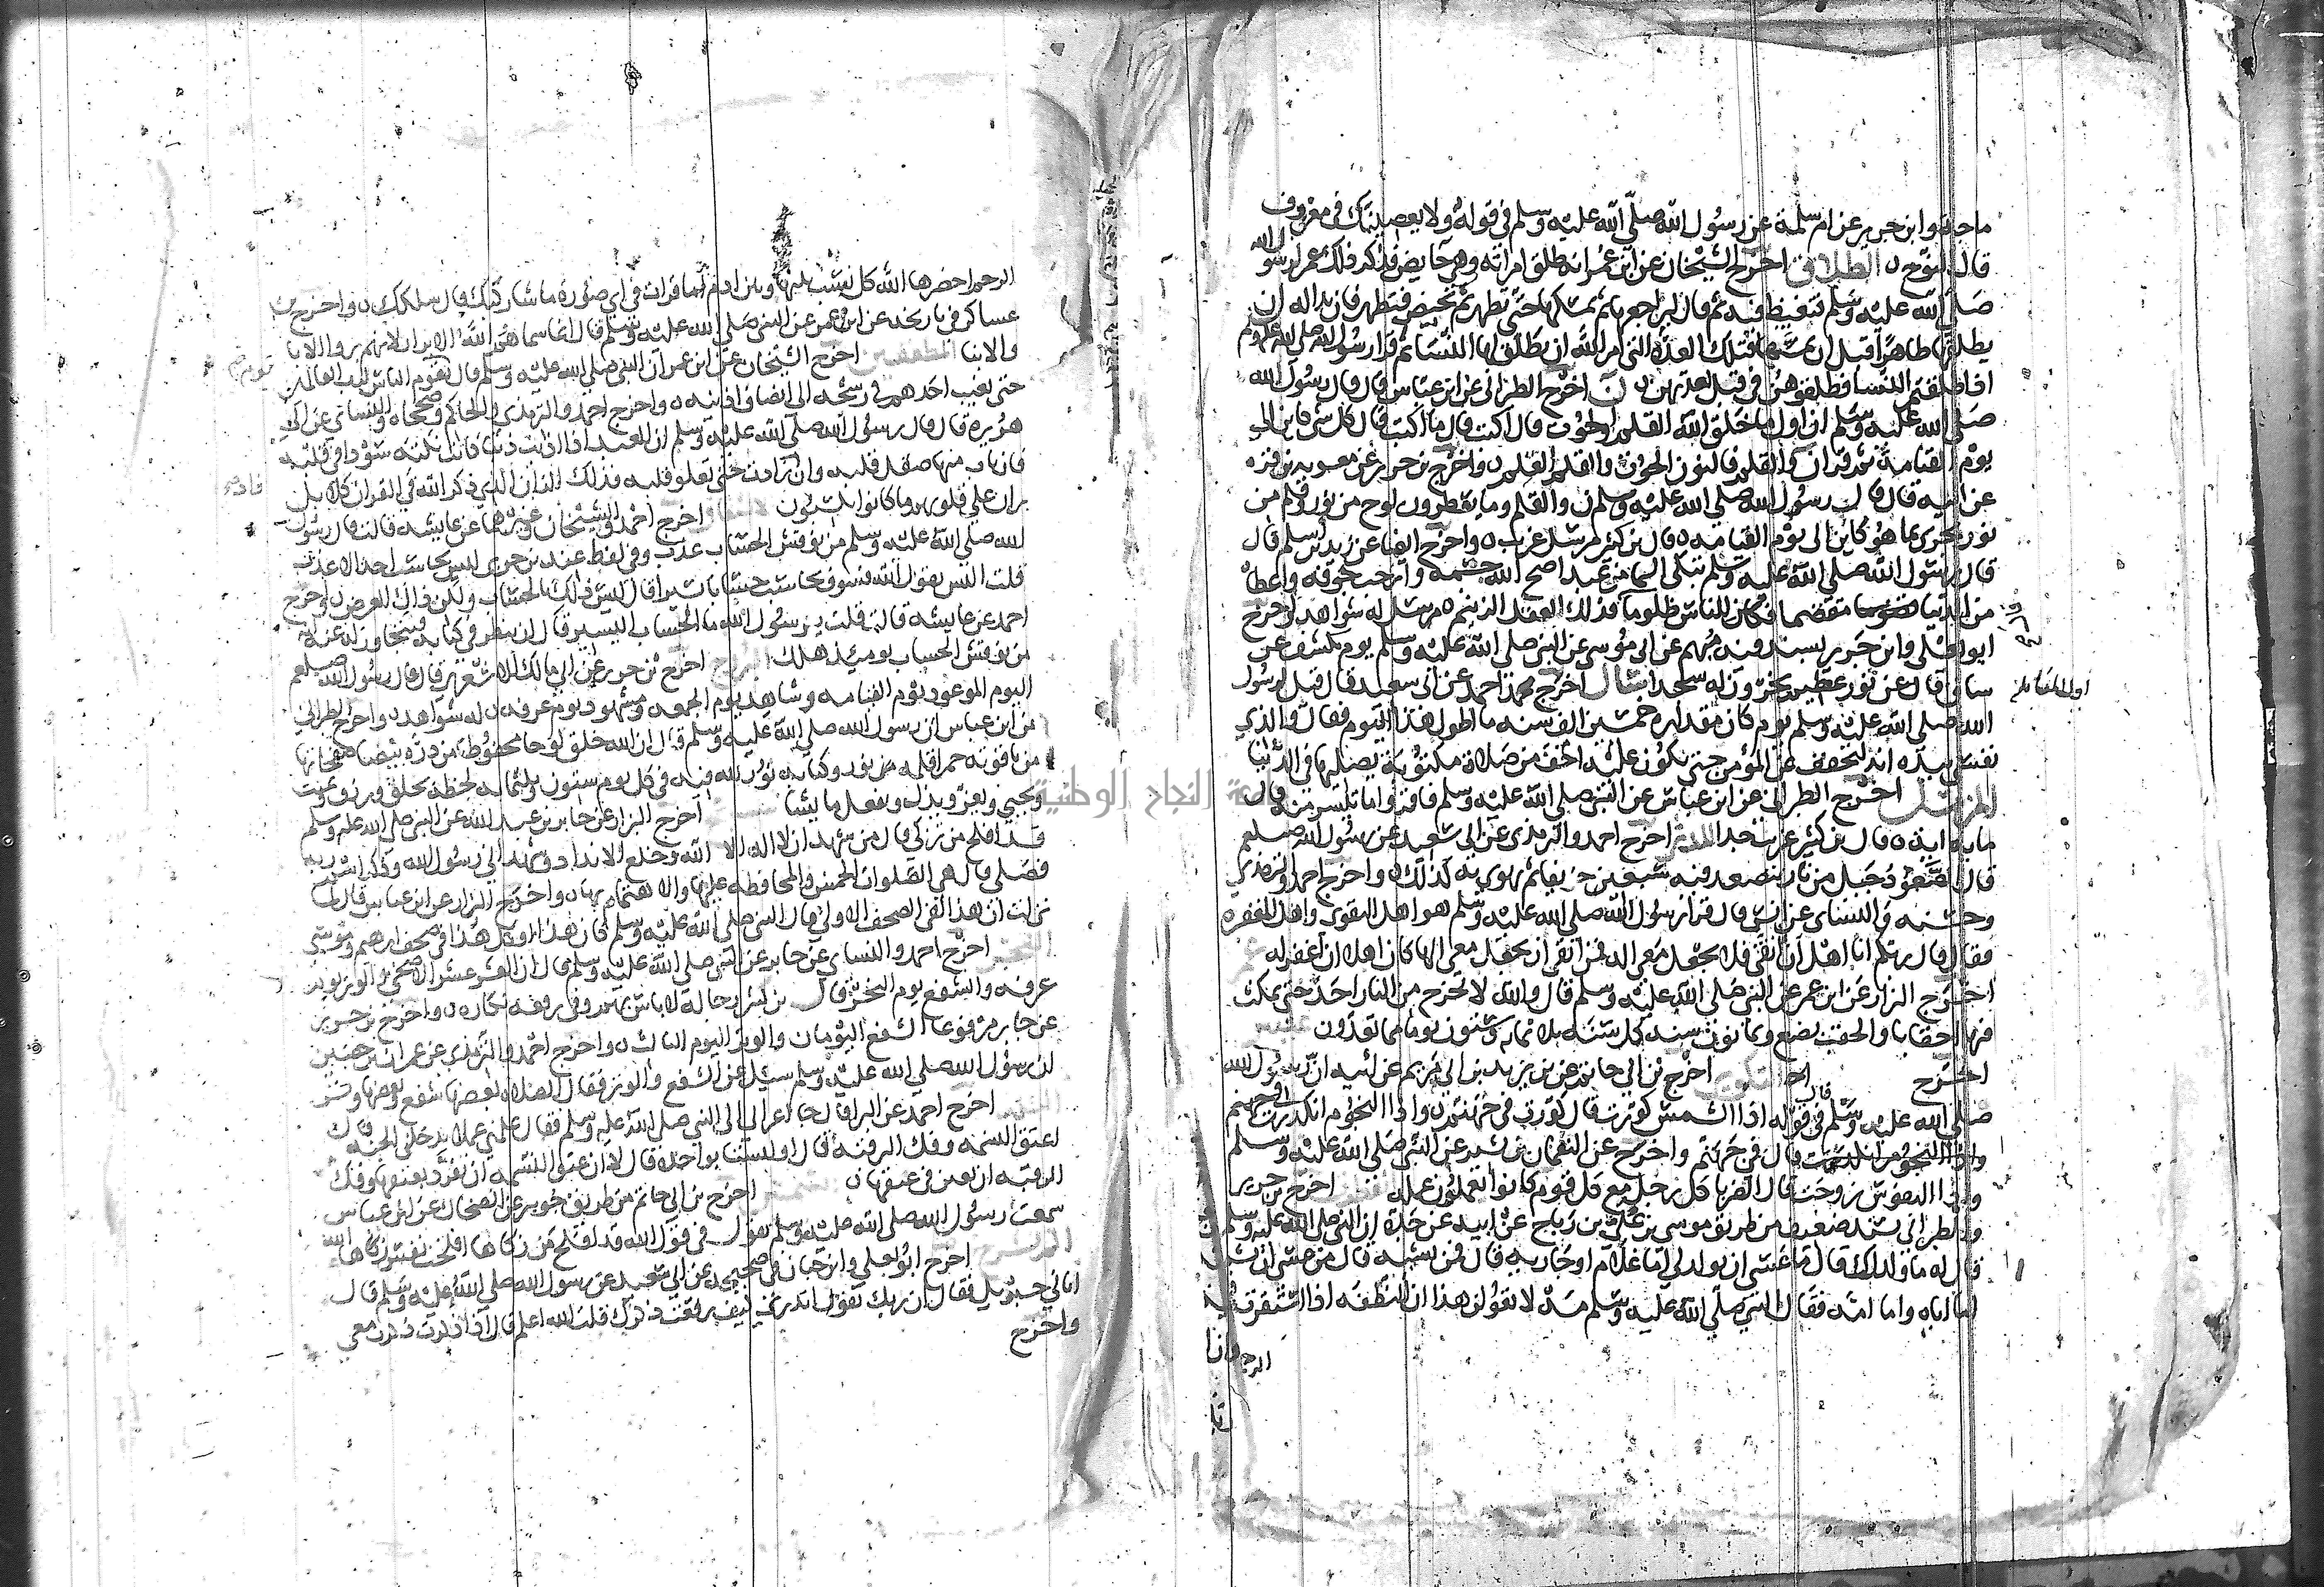 ماجه وابن جرير عن ام سلمة عن رسول الله صلى الله عليه وسلم في قوله ولا يعصينك في معروف
قال النوح الطلاق اخرج الشيخان عن ابن عمر انه طلق امراته وهي حايض فذكر ذلك عمر لرسول الله
صلى الله عليه وسلم فتغيظ فيه ثم قال ليراجعها ثم يمسكها حتى تطهر ثم تحيض فتطهر فان بدا له ان
يطلقها طاهرا قبل ان يمسها فتلك العدة التي امر الله ان يطلق لها النساء ثم قرا رسول الله صلى الله عليه وسلم
اذا طلقتم النسا فطلقوهن في قبل عدتهن ن اخرج الطبراني عن ابن عباس قال قال رسول الله
صلى الله عليه وسلم ان اول ما خلق الله القلم والحوت قال اكتب قال ما اكتب قال كل شي كاين الى
يوم القيامة ثم قرا ن والقلم فالنون الحوت والقلم القلم واخرج بن جرير عن معوية بن قره
عن ابيه قال قال رسول الله صلى الله عليه وسلم ن والقلم وما يسطرون لوح من نور وقلم من
نور يجرى بما هو كاين الى يوم القيامه قال بن كثير مرسل غريب واخرج ايضا عن زيد بن اسلم قال
قال رسول الله صلى الله عليه وسلم تبكي السما من عبد اصح الله جسمه وارحب جوفه واعطاه
من الدنيا مقضما فكان للناس ظلوما فذلك العتل الزنيم مرسل له شواهد واخرج
ابو يعلى وابن جرير بسند فيه مبهم عن ابي موسى عن النبي صلى الله عليه وسلم يوم يكشف عن
ساق قال عن نور عظيم يخرون له سجدا سال اخرج احمد عن ابي سعيد قال قيل لرسول
الله صلى الله عليه وسلم يوم كان مقداره خمسين الف سنه ما اطول هذا اليوم فقال والذي
نفسي بيده انه ليخفف عن المؤمن حتى يكون عليه اخف من صلاة مكتوبة يصليها في الدنيا
المزمل اخرج الطبراني عن ابن عباس عن النبي صلى الله عليه وسلم فاقروا ما تيسر منه قال
مايه ايه قال بن كثير غريب جدا المدثر اخرج احمد والترمذي عن ابي سعيد عن رسول الله صلعم
قال الصعود جبل من نار يتصعد فيه سبعين خريفا ثم يهوي به كذلك واخرج احمد والترمذي
وحسنه والنساي عن انس قال قرا رسول الله صلى الله عليه وسلم هو اهل التقوى واهل المغفره
فقال قال ربكم انا اهل ان اتقى فلا يجعل معي اله فمن اتقى ان يجعل معي الها كان اهلا ان اغفر له
اخرج البزار عن ابن عمر عن النبي صلى الله عليه وسلم قال والله لا يخرج من النار احد حتى يمكث
فيها احقابا والحقب بضع وثمانون سنه كل سنة ثلاثمايه وستون يوما مما تعدون
اخرج اخرج بن ابي حاتم عن بن بريد بن ابي مريم عن ابيه ان رسول الله
صلى الله عليه وسلم قال في قوله اذا الشمس كورت قال كورت في جهنم واذا النجوم انكدرت قال في جهنم
واخرج عن النعمان بن بشير عن النبي صلى الله عليه وسلم
واذا النفوس زوجت قال القرنا كل رجل مع كل قوم كانوا يعملون عمله اخرج بن جرير
والطبراني بسند ضعيف من طريق موسى بن علي بن رباح عن ابيه عن جده ان النبي صلى الله عليه وسلم
قال له ما ولد لك قال ما عسى ان يولد لي اما غلام او جارية قال فمن يشبه قال من عسى ان يشبه
اما اباه واما امه فقال النبي صلى الله عليه وسلم مه لا تقولن هذا ان النطفه اذا استقرت في
الرحم
الرحم احضرها الله كل نسب بينها وبين ادم اما قرات في اي صورة ما شا ركبك قال سلكك واخرج بن
عساكر في تاريخه عن ابن عمر عن النبي صلى الله عليه وسلم قال انما سماهم الله الابرار لانهم بروا الابا
والابنا المطففين اخرج الشيخان عن ابن عمر ان النبي صلى الله عليه وسلم قال يقوم الناس لرب العالمين
حتى يغيب احدهم في رشحه الى انصاف اذنيه واخرج احمد والترمذي والحاكم وصححاه والنسائي عن ابي
هريرة قال قال رسول الله صلى الله عليه وسلم ان العبد اذا اذنب ذنبا كانت نكتة سودا في قلبه
فان تاب منها صقل قلبه وان زادت حتى تعلو قلبه فذلك الران الذي ذكر الله في القران كلا بل
ران على قلوبهم ما كانوا يكسبون اخرج احمد والشيخان وغيرهما عن عايشه قالت قال رسول
الله صلى الله عليه وسلم من نوقش الحساب عذب وفي لفظ عند بن جرير ليس يحاسب احد الا عذب
قلت اليس يقول الله فسوف يحاسب حسابا يسيرا قال ليس ذلك الحساب ولكن ذاك العرض واخرج
احمد عن عايشه قالت قلت يرسول الله ما الحساب اليسير قال ان ينظر في كتابه فيتجاوز له عنه
من نوقش الحساب يوميذ هلك البروج اخرج بن جرير عن ابي مالك الاشعري قال قال رسول الله صلعم
اليوم الموعود يوم القيامه وشاهد يوم الجمعه ومشهود يوم عرفه له شواهد واخرج الطبراني
عن ابن عباس ان رسول الله صلى الله عليه وسلم قال ان الله خلق لوحا محفوظا من درة بيضا صفحاتها
من ياقوته حمرا قلمه من نور وكتابه نور لله فيه في كل يوم ستون وثلثمايه لحظه يخلق ويرزق ويميت
ويحيي ويعز ويذل ويفعل ما يشا اخرج البزار عن جابر بن عبد الله عن النبي صلى الله عليه وسلم
قد افلح من تزكى قال من شهد ان لا اله الا الله وخلع الانداد وشهد اني رسول الله وذكر اسم ربه
فصلى قال هي الصلوات الخمس والمحافظه عليها والاهتمام بها واخرج البزار عن ابن عباس قال لما
نزلت ان هذا لفي الصحف الاولى قال النبي صلى الله عليه وسلم كان هذا او كل هذا في صحف ابرهيم وموسى
الفجر اخرج احمد والنساي عن جابر عن النبي صلى الله عليه وسلم قال ان العشر عشر الاضحى والوتر يوم
عرفه والشفع يوم النحر قال بن كثير رجاله لا باس بهم وفي رفعه نكاره واخرج بن جرير
عن جابر مرفوعا الشفع اليومان والوتر اليوم الثالث واخرج احمد والترمذي عن عمران بن حصين
ان رسول الله صلى الله عليه وسلم سئل عن الشفع والوتر فقال الصلاه بعضها شفع وبعضها وتر
اخرج احمد عن البرا قال جا اعرابي الى النبي صلى الله عليه وسلم فقال علمني عملا يدخلني الجنه قال
اعتق النسمه وفك الرقبه قال اوليستا بواحدة قال لا ان عتق النسمه ان تفرد بعتقها وفك
الرقبه ان تعين في عتقها اخرج بن ابي حاتم من طريق جويبر عن الضحاك عن ابن عباس
سمعت رسول الله صلى الله عليه وسلم يقول في قول الله قد افلح من زكاها افلحت نفس زكاها الله
الم نشرح اخرج ابو يعلى وابن حبان في صحيحه عن ابي سعيد عن رسول الله صلى الله عليه وسلم قال
اتاني جبريل فقال ان ربك يقول اتدري كيف رفعت ذكرك قلت الله اعلم قال اذا ذكرت ذكرت معي
واخرج
جامعة النجاح الوطنية